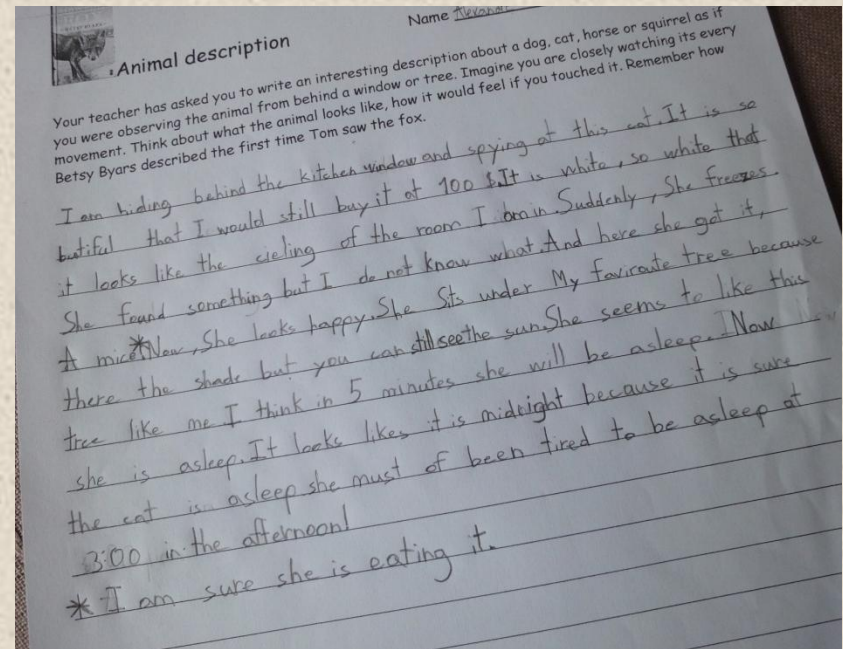 Name
Animal description
Your teacher has asked you to write an interesting description about a dog, cat, horse or squirrel as if
you were observing the animal from behind a window or tree. Imagine you are closely watching its every
movement. Think about what the animal looks like, how it would feel if you touched it. Remember how
Betsy Byars described the first time Tom saw the fox.
I am hiding behind the kitchen window and spying at this cat. It is so
butiful that I would still buy it at 100 $. It is white, so white that
it looks like the cieling of the room I am in. Suddenly, She freezes.
She found something but I do not know what. And here she got it,
A mice!* Now, She looks happy. She Sits under My favirate tree because
there the shade but you can still see the sun. She seems to like this
tree like me. I think in 5 minutes she will be asleep. Now
she is asleep. It looks likes it is midnight because it is sure
the cat is asleep she must of been tired to be asleep at
3:00 in the afternoon!
* I am sure she is eating it.